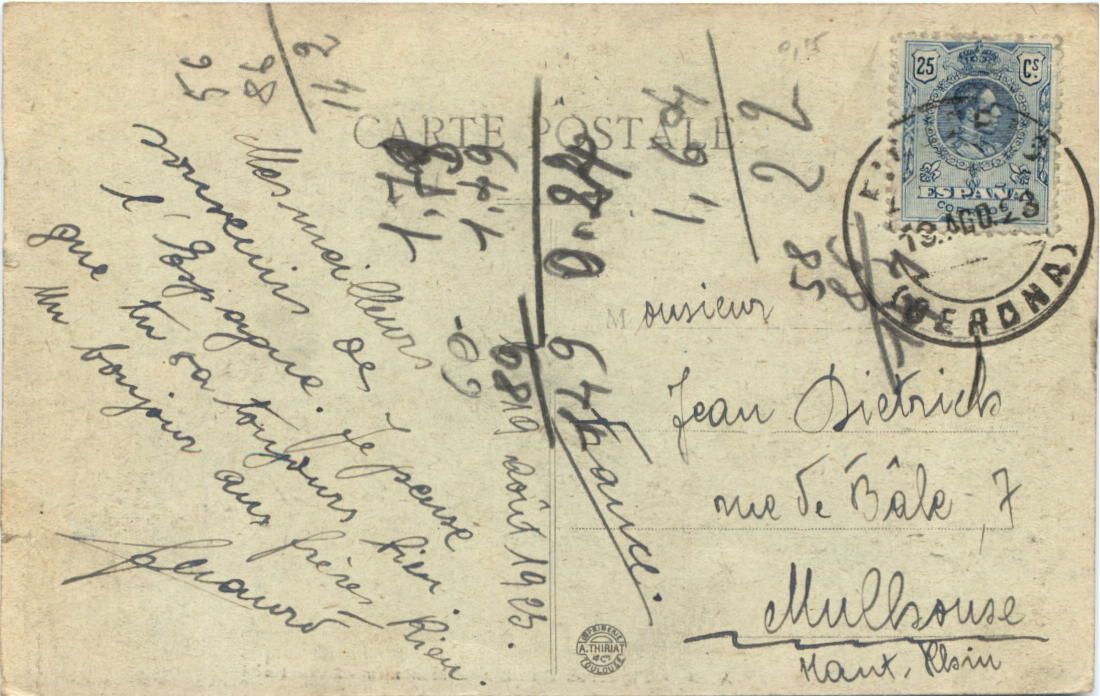 CARTE POSTALE
19 août 1923.
Mes meilleurs
souvenirs de
l'Espagne. Je pense
que tu va toujours bien.
Un bonjour aux frères
M onsieur
Jean Dietrich
rue de Bâle 7
Mulhouse
Haut-Rhin
France.
25 Cs
ESPAÑA
CORREOS
19 AGO 23
(GERONA)
IMPRIMERIE
A. THIRIAT
TOULOUSE
0,15
2 14
88
56
1,79
1,79
1,49
0-24
1,64
22
22
58
149
89